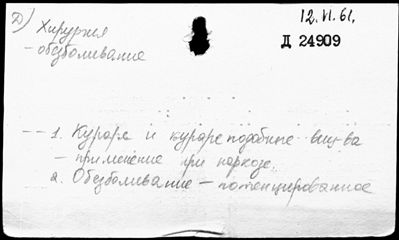 Д)
12.VI.61.
Хирургия
Д 24909
- обезболивание
-- 1. Кураре и курареподобные вещ-ва
- применение при наркозе.
2. Обезболивание - потенцированное